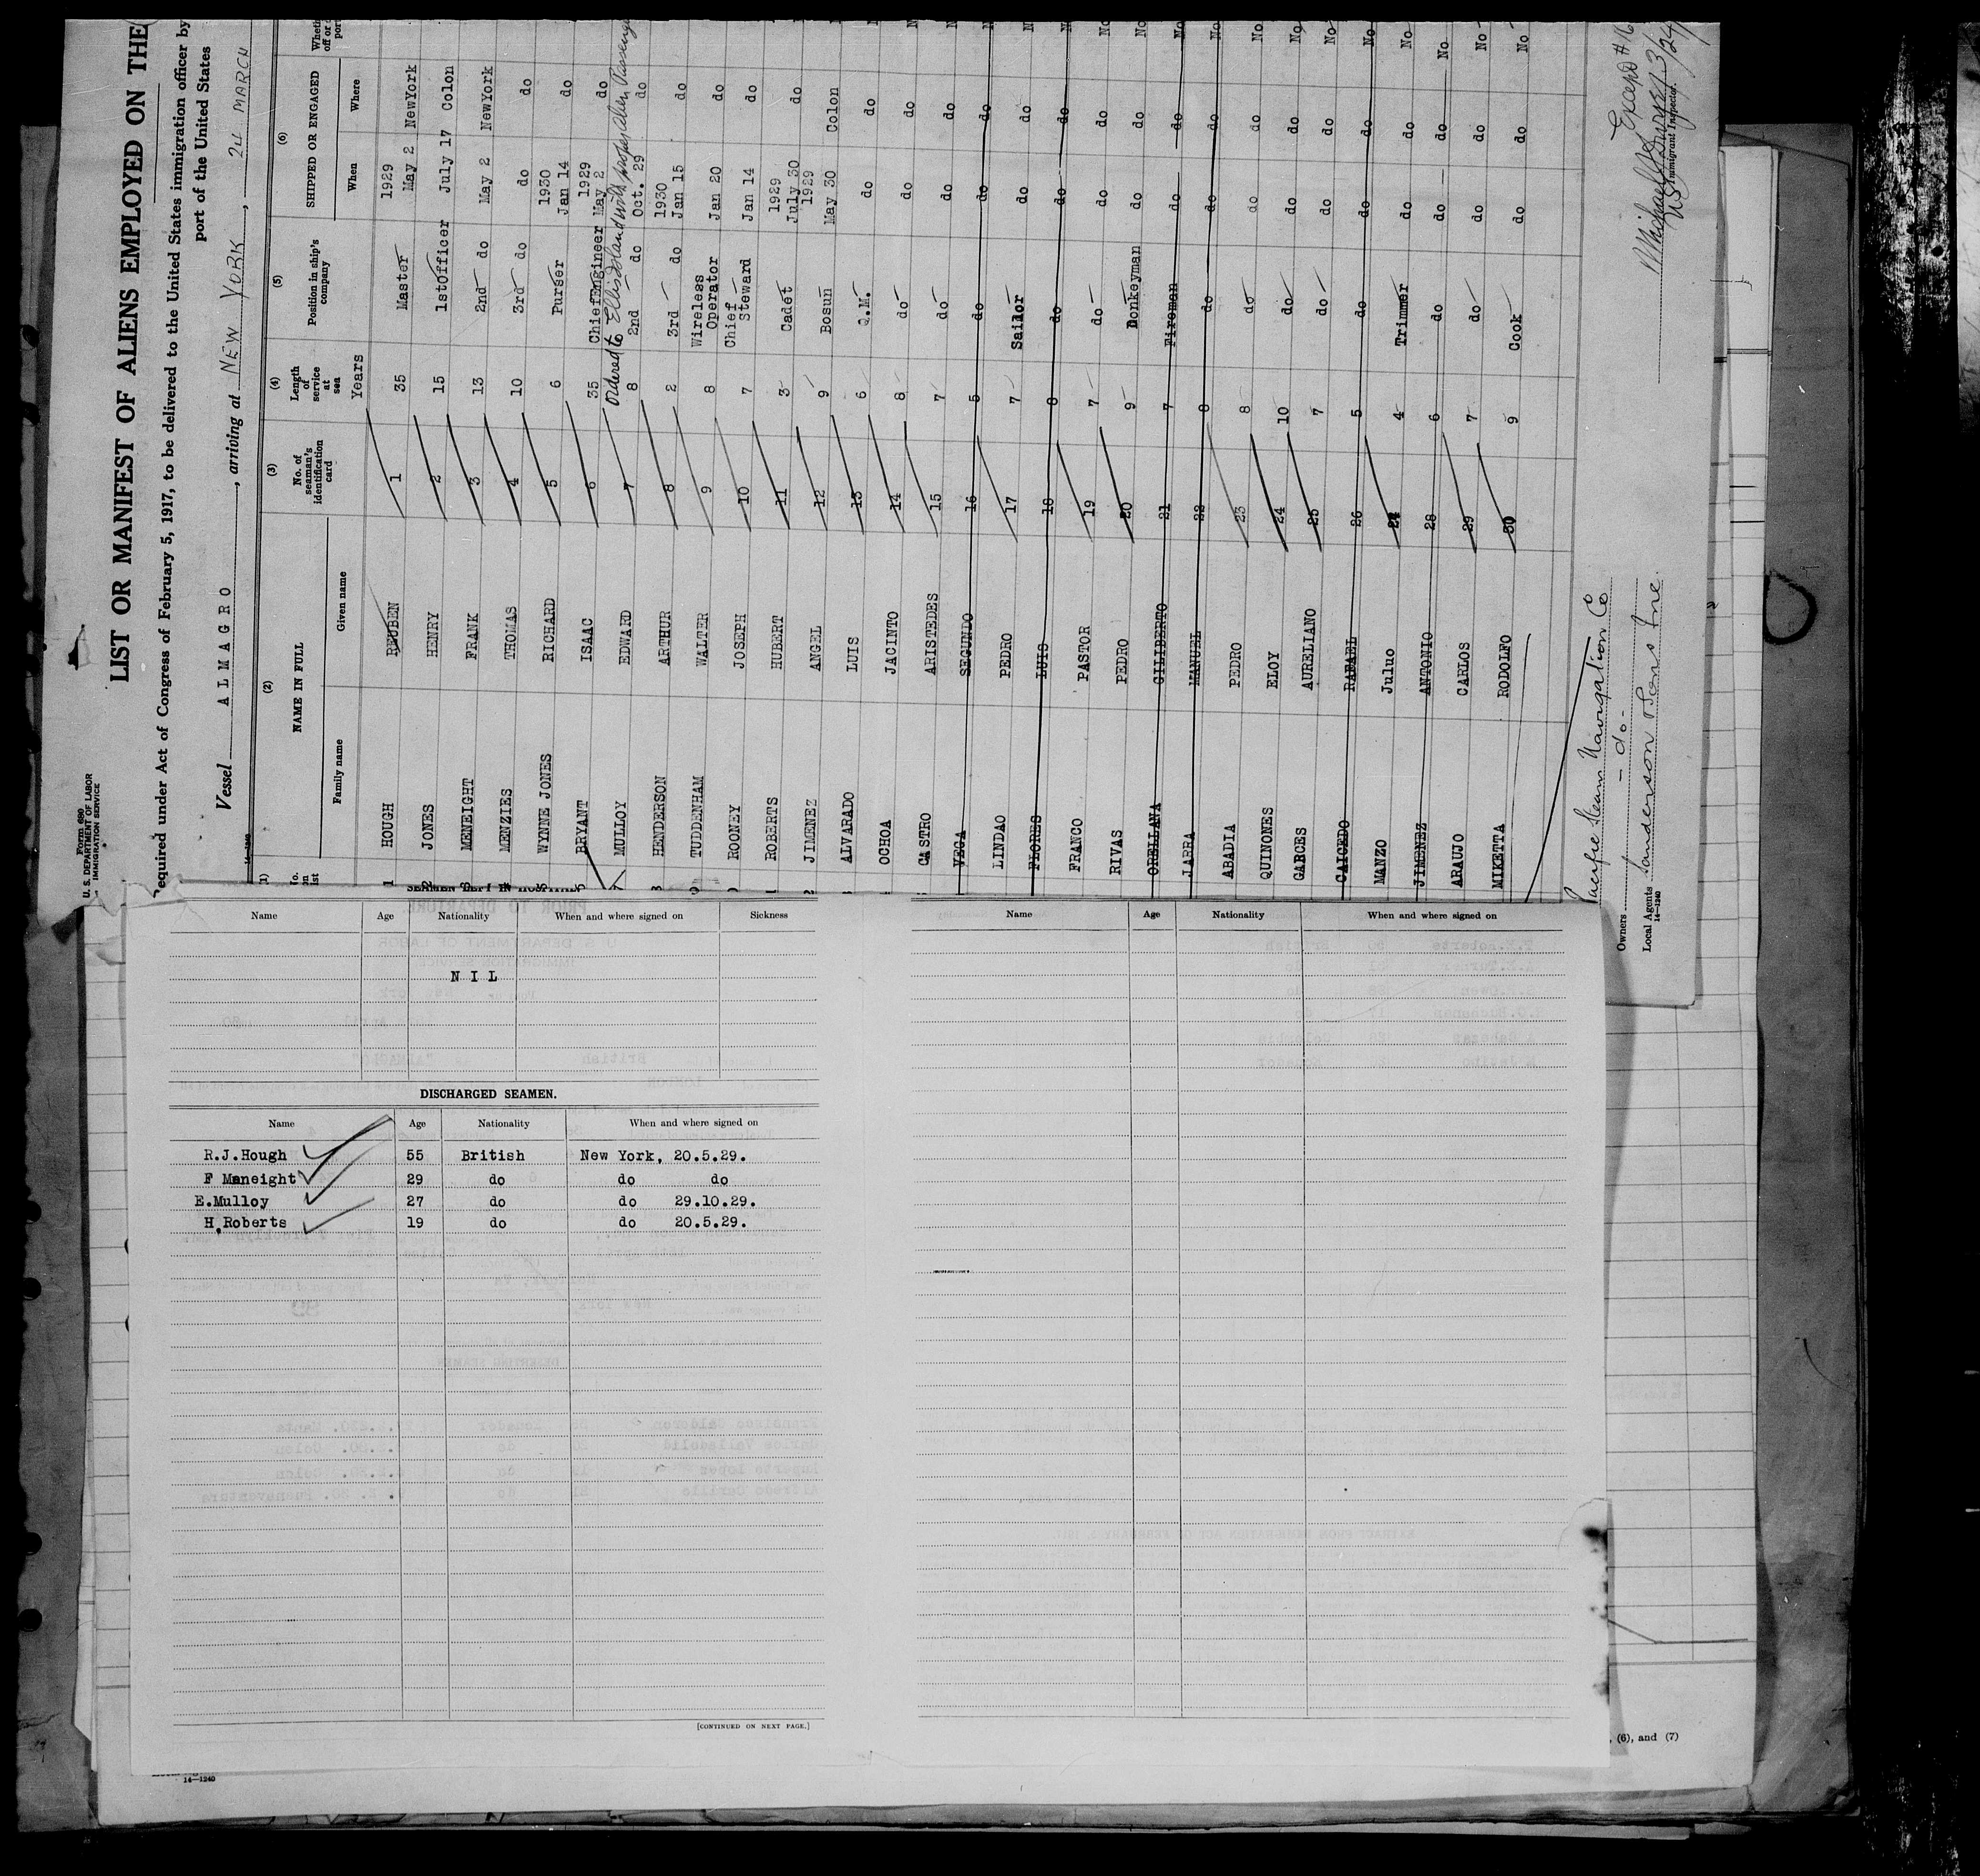 Form 680
U. S. DEPARTMENT OF LABOR
IMMIGRATION SERVICE
LIST OR MANIFEST OF ALIENS EMPLOYED ON THE
Required under Act of Congress of February 5, 1917, to be delivered to the United States immigration officer by
port of the United States
Vessel ALMAGRO, arriving at NEW YORK, 24 MARCH
14—1240
(1) (2) (3) (4) (5) (6)
No. on list NAME IN FULL No. of seaman's identification card Length of service at sea Position in ship's company SHIPPED OR ENGAGED
Family name Given name Years When Where
1 HOUGH REUBEN 1 35 Master 1929 May 2 NewYork
2 JONES HENRY 2 15 1stOfficer July 17 Colon
3 MENEIGHT FRANK 3 13 2nd do May 2 NewYork
4 MENZIES THOMAS 4 10 3rd do do do
5 WYNNE JONES RICHARD 5 6 Purser 1930 Jan 14 do
6 BRYANT ISAAC 6 35 ChiefEngineer 1929 May 2 do
Ordered to Ellis Island with proper Alien Passenger
7 MULLOY EDWARD 7 8 2nd do Oct. 29 do
8 HENDERSON ARTHUR 8 2 3rd do 1930 Jan 15 do
9 TUDDENHAM WALTER 9 8 Wireless Operator Jan 20 do
0 ROONEY JOSEPH 10 7 Chief Steward Jan 14 do
1 ROBERTS HUBERT 11 3 Cadet 1929 July 30 do
2 JIMENEZ ANGEL 12 9 Bosun 1929 May 30 Colon
3 ALVARADO LUIS 13 6 Q.M. do do
OCHOA JACINTO 14 8 do do do
CASTRO ARISTEDES 15 7 do do do
VEGA SEGUNDO 16 5 do do do No
LINDAO PEDRO 17 7 Sailor do do No
FLORES LUIS 18 8 do do do No
FRANCO PASTOR 19 7 do do do No
RIVAS PEDRO 20 9 Donkeyman do do No
ORELLANA GILIBERTO 21 7 Fireman do do No
JARRA MANUEL 22 8 do do do No
ABADIA PEDRO 23 8 do do do No
QUINONES ELOY 24 10 do do do No
GARCES AURELIANO 25 7 do do do No
CAICEDO RAFAEL 26 5 do do do No
MANZO Juluo 27 4 Trimmer do do No
JIMENEZ ANTONIO 28 6 do do do No
ARAUJO CARLOS 29 7 do do do No
MIKETTA RODOLFO 30 9 Cook do do No
Pacific Steam Navigation Co
Owners - do -
Local Agents Sanderson & Sons Inc.
14—1240
Except #16
Immigrant Inspector.
SEAMEN LEFT IN HOSPITAL
Name Age Nationality When and where signed on Sickness
NIL
DISCHARGED SEAMEN.
Name Age Nationality When and where signed on
R.J.Hough 55 British New York, 20.5.29.
F Maneight 29 do do do
E.Mulloy 27 do do 29.10.29.
H.Roberts 19 do do 20.5.29.
[CONTINUED ON NEXT PAGE.]
Name Age Nationality When and where signed on
, (6), and (7)
14—1240